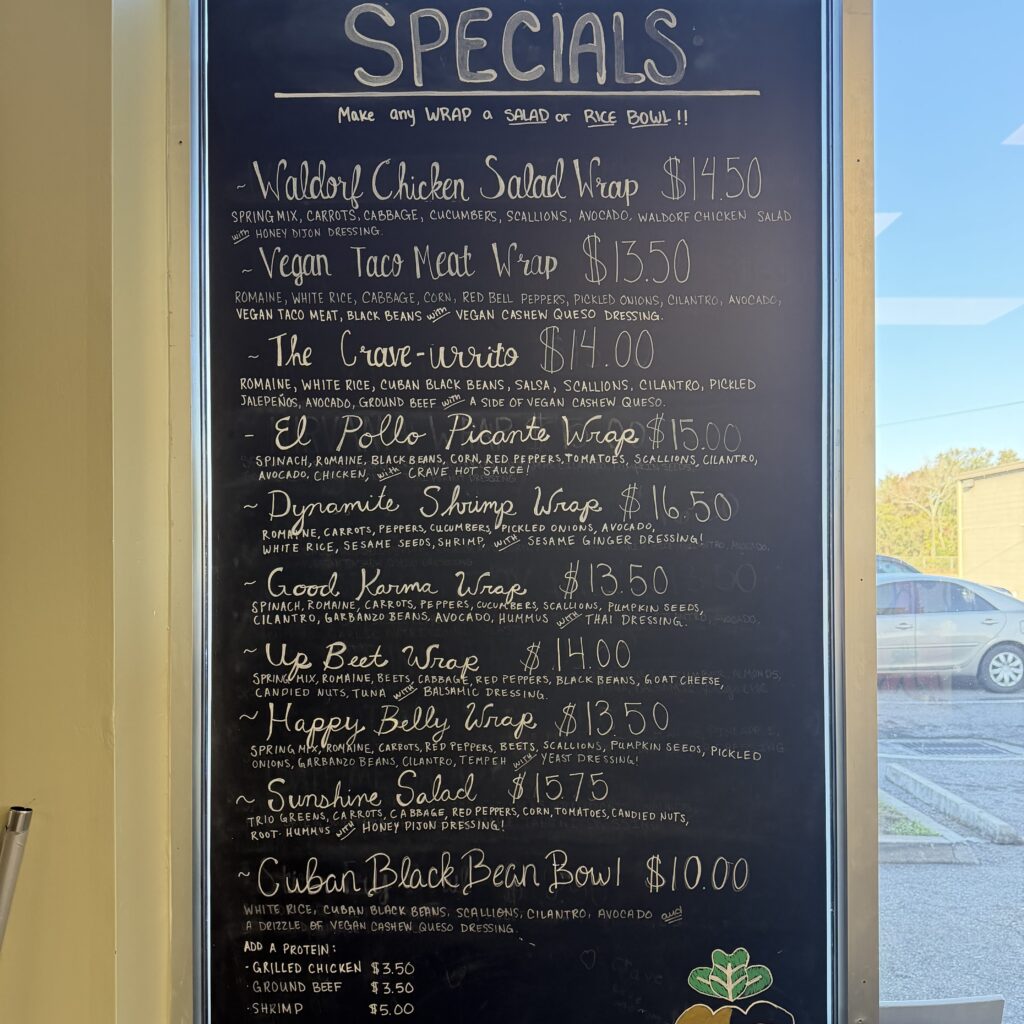 SPECIALS
Make any WRAP a SALAD or RICE BOWL!!
~ Waldorf Chicken Salad Wrap $14.50
SPRING MIX, CARROTS, CABBAGE, CUCUMBERS, SCALLIONS, AVOCADO, WALDORF CHICKEN SALAD
with HONEY DIJON DRESSING.
~ Vegan Taco Meat Wrap $13.50
ROMAINE, WHITE RICE, CABBAGE, CORN, RED BELL PEPPERS, PICKLED ONIONS, CILANTRO, AVOCADO,
VEGAN TACO MEAT, BLACK BEANS with VEGAN CASHEW QUESO DRESSING.
~ The Crave-urrito $14.00
ROMAINE, WHITE RICE, CUBAN BLACK BEANS, SALSA, SCALLIONS, CILANTRO, PICKLED
JALEPEÑOS, AVOCADO, GROUND BEEF with A SIDE OF VEGAN CASHEW QUESO.
- El Pollo Picante Wrap $15.00
SPINACH, ROMAINE, BLACK BEANS, CORN, RED PEPPERS, TOMATOES, SCALLIONS, CILANTRO,
AVOCADO, CHICKEN, with CRAVE HOT SAUCE!
~ Dynamite Shrimp Wrap $16.50
ROMAINE, CARROTS, PEPPERS, CUCUMBERS, PICKLED ONIONS, AVOCADO,
WHITE RICE, SESAME SEEDS, SHRIMP, with SESAME GINGER DRESSING!
~ Good Karma Wrap $13.50
SPINACH, ROMAINE, CARROTS, PEPPERS, CUCUMBERS, SCALLIONS, PUMPKIN SEEDS,
CILANTRO, GARBANZO BEANS, AVOCADO, HUMMUS with THAI DRESSING.
~ Up Beet Wrap $14.00
SPRING MIX, ROMAINE, BEETS, CABBAGE, RED PEPPERS, BLACK BEANS, GOAT CHEESE,
CANDIED NUTS, TUNA with BALSAMIC DRESSING.
~ Happy Belly Wrap $13.50
SPRING MIX, ROMAINE, CARROTS, RED PEPPERS, BEETS, SCALLIONS, PUMPKIN SEEDS, PICKLED
ONIONS, GARBANZO BEANS, CILANTRO, TEMPEH with YEAST DRESSING!
~ Sunshine Salad $15.75
TRIO GREENS, CARROTS, CABBAGE, RED PEPPERS, CORN, TOMATOES, CANDIED NUTS,
ROOT HUMMUS with HONEY DIJON DRESSING!
~ Cuban Black Bean Bowl $10.00
WHITE RICE, CUBAN BLACK BEANS, SCALLIONS, CILANTRO, AVOCADO and
A DRIZZLE OF VEGAN CASHEW QUESO DRESSING.
ADD A PROTEIN:
· GRILLED CHICKEN $3.50
· GROUND BEEF $3.50
· SHRIMP $5.00